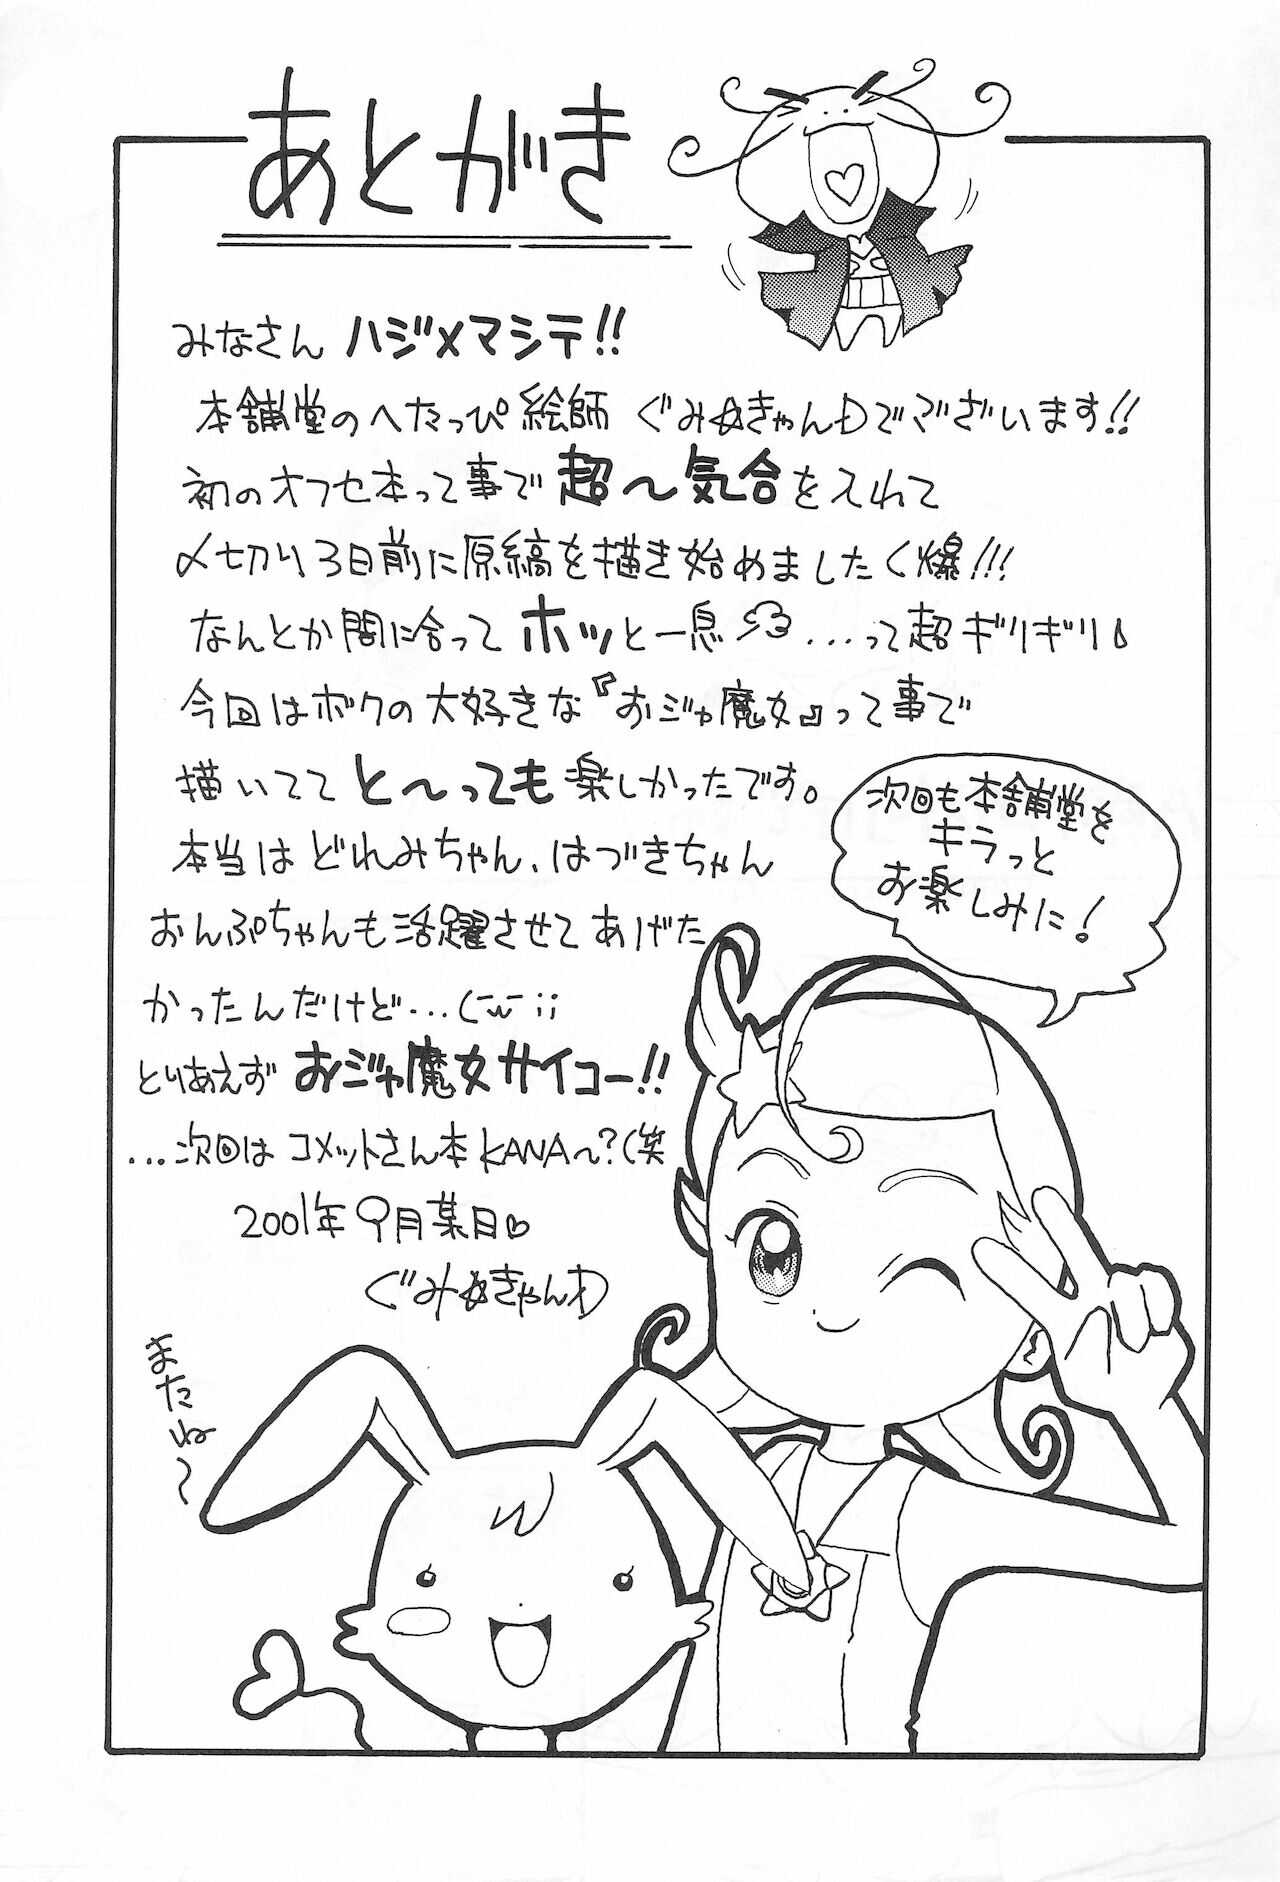 あとがき
みなさん ハジメマシテ!!
本舗堂のへたっぴ絵師 ぐみ☆きゃんDでございます!!
初のオフセ本って事で 超〜気合を入れて
〆切り3日前に原稿を描き始めましたく爆!!!
なんとか間に合って ホッと一息 ...って超ギリギリ
今回はボクの大好きな『おジャ魔女』って事で
描いてて と〜っても 楽しかったです。
本当は どれみちゃん、はづきちゃん
おんぷちゃんも活躍させてあげた
かったんだけど...(-w-;;
とりあえず おジャ魔女サイコー!!
...次回は コメットさん本KANA〜?(笑
2001年9月某日♡
ぐみ☆きゃんD
次回も本舗堂を
キラっと
お楽しみに!
またね〜